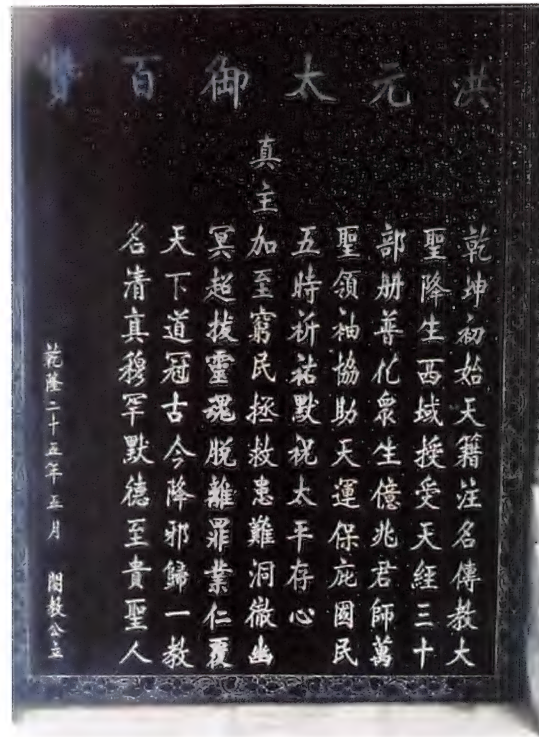 洪元太御百贊
乾坤初始天籍注名傳教大
聖降生西域授受天經三十
部册普化衆生億兆君師萬
聖領袖協助天運保庇國民
五時祈祐默祝太平存心
真主加至窮民拯救患難洞徹幽
冥超拔靈魂脫離罪業仁覆
天下道冠古今降邪歸一教
名清真穆罕默德至貴聖人
乾隆二十五年五月 閤教公立